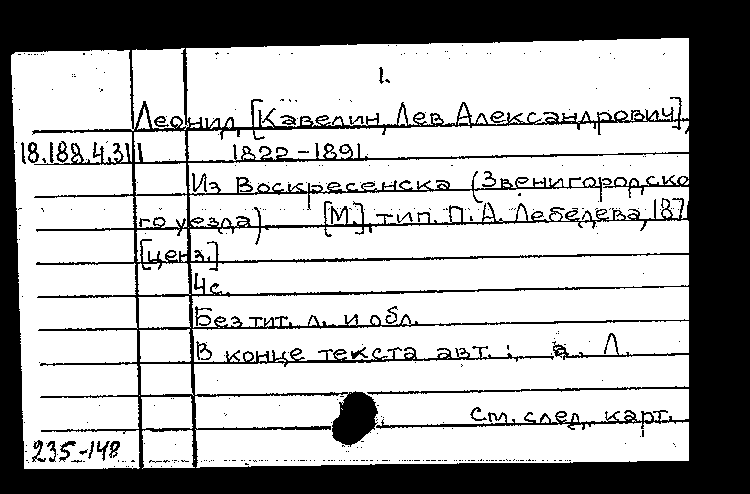 1.
Леонид, [Кавелин, Лев Александрович],
18.188.4.311 1822-1891.
Из Воскресенска (Звенигородско
го уезда). [М.], тип. П. А. Лебедева, 1871
[ценз.]
4с.
Без тит. л. и обл.
В конце текста авт.: а. Л.
См. след. карт.
235-148